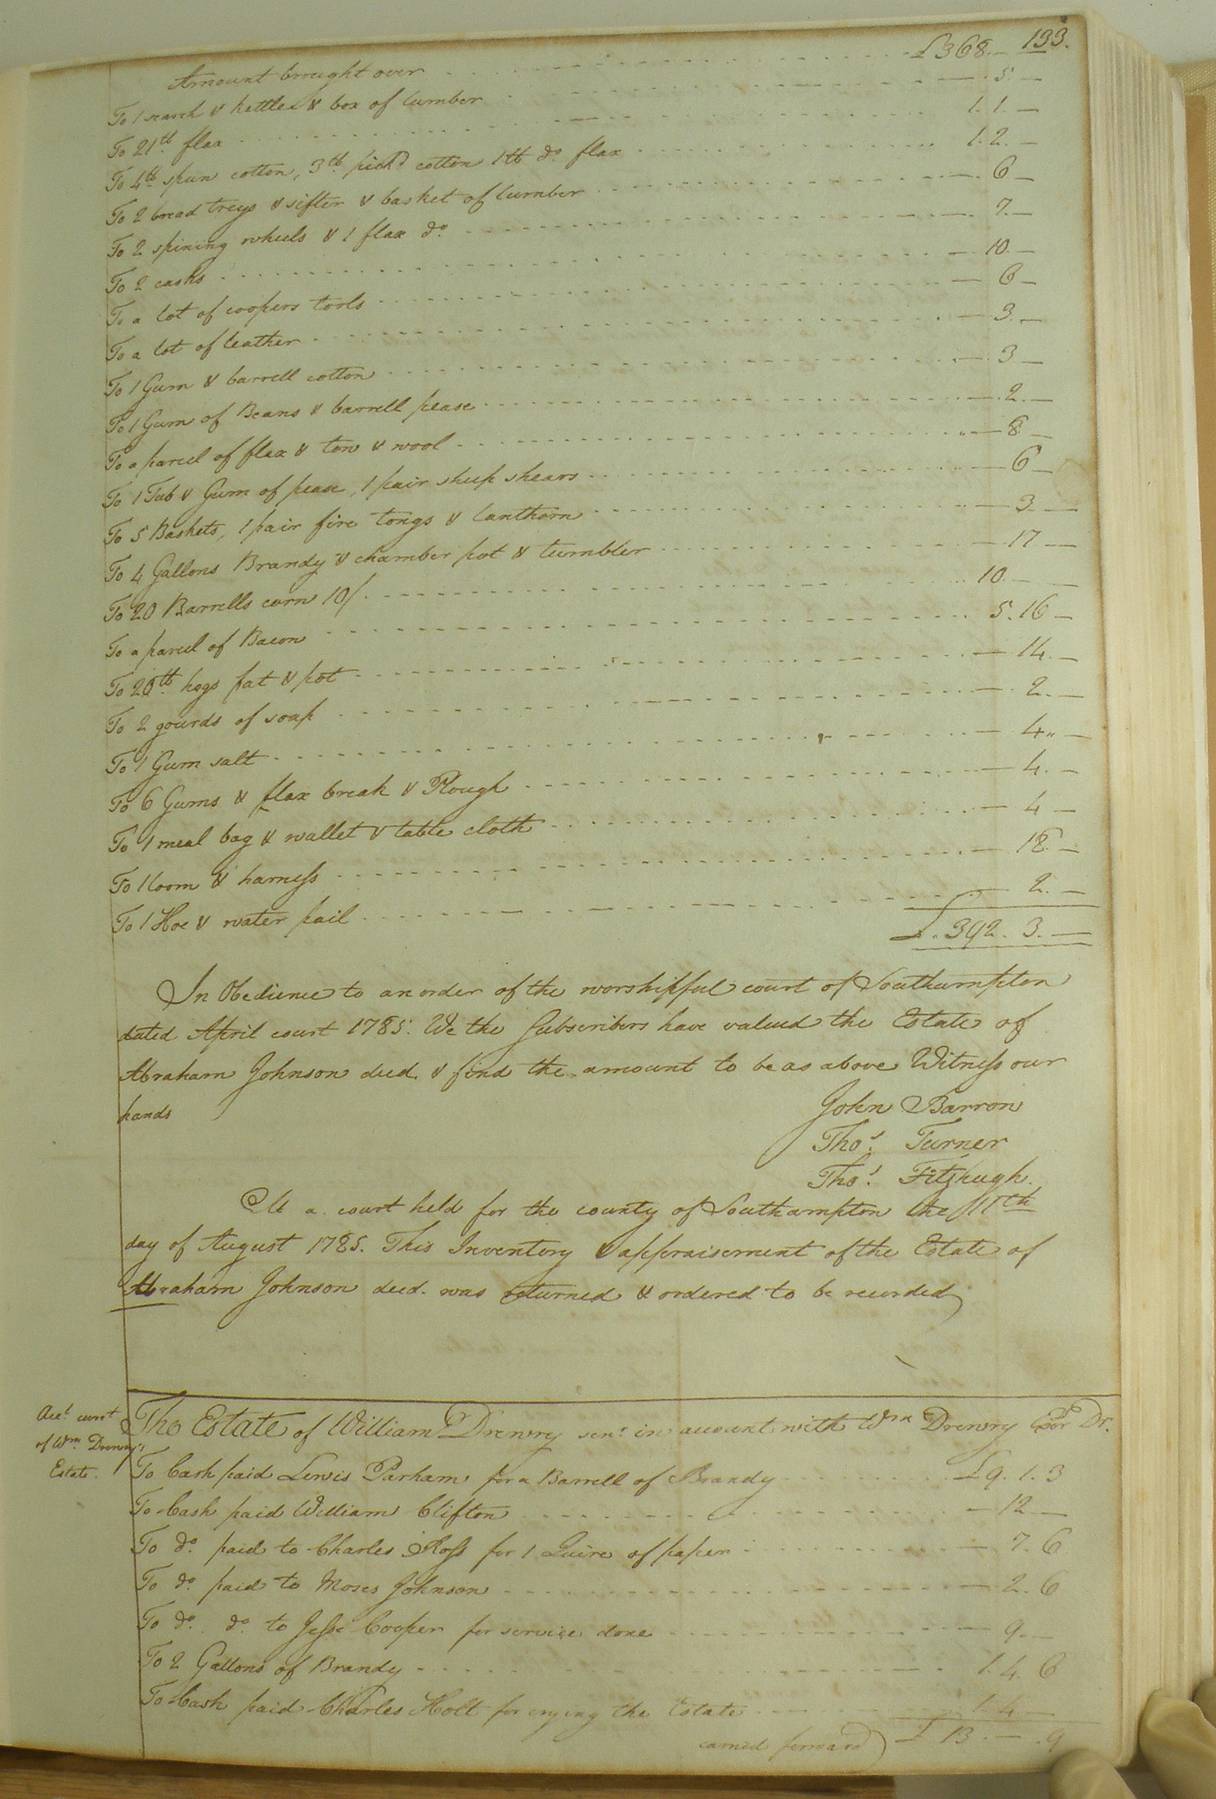 133.
Amount brought over £368.—
To 1 search & kettle & box of lumber — 5. —
To 21lb flax 1. 1. —
To 4lb spun cotton, 3lb pickd cotton 1lb do flax 1. 2. —
To 2 bread treys & sifter & basket of lumber — 6 —
To 2 spining wheels & 1 flax do — 7. —
To 2 casks — 10. —
To a lot of coopers tools — 6 —
To a lot of leather — 3. —
To 1 Gum & barrell cotton — 3 —
To 1 Gum of Beans & barrell pease — 2. —
To a parcel of flax & tow & wool — 8 —
To 1 Tub & Gum of pease, 1 pair sheep shears — 6 —
To 5 Baskets, 1 pair fire tongs & lanthorn — 3. —
To 4 Gallons Brandy & chamber pot & tumbler — 17 —
To 20 Barrells corn 10/. 10. — —
To a parcel of Bacon 5. 16 —
To 28lb hogs fat & pot — 14. —
To 2 gourds of soap — 2. —
To 1 Gum salt — 4.. —
To 6 Gums & flax break & Plough — 4. —
To 1 meal bag & wallet & table cloth — 4 —
To 1 loom & harness — 18. —
To 1 Hoe & water pail — 2. —
£. 392. 3. —
In Obedience to an order of the worshipful court of Southampton
dated April court 1785. We the Subscribers have valued the Estate of
Abraham Johnson decd. & find the amount to be as above Witness our
hands
John Barron
Thos. Turner
Thos. Fitzhugh.
At a court held for the county of Southampton the 11th
day of August 1785. This Inventory & appraisement of the Estate of
Abraham Johnson decd. was returned & ordered to be recorded
Acct. currt
of Wm Drewry's
Estate.
The Estate of William Drewry senr. in account with Wm Drewry Exor Dr.
To Cash paid Lewis Parham for a Barrell of Brandy £9. 1. 3
To Cash paid William Clifton — 12 —
To do. paid to Charles Ross for 1 Quire of paper — 7. 6
To do. paid to Moses Johnson — 2. 6
To do. do. to Jesse Cooper for service done — 9. —
To 2 Gallons of Brandy 1. 4. 6
To Cash paid Charles Holt for crying the Estate 1. 4 —
carried forward) £ 13. — . 9